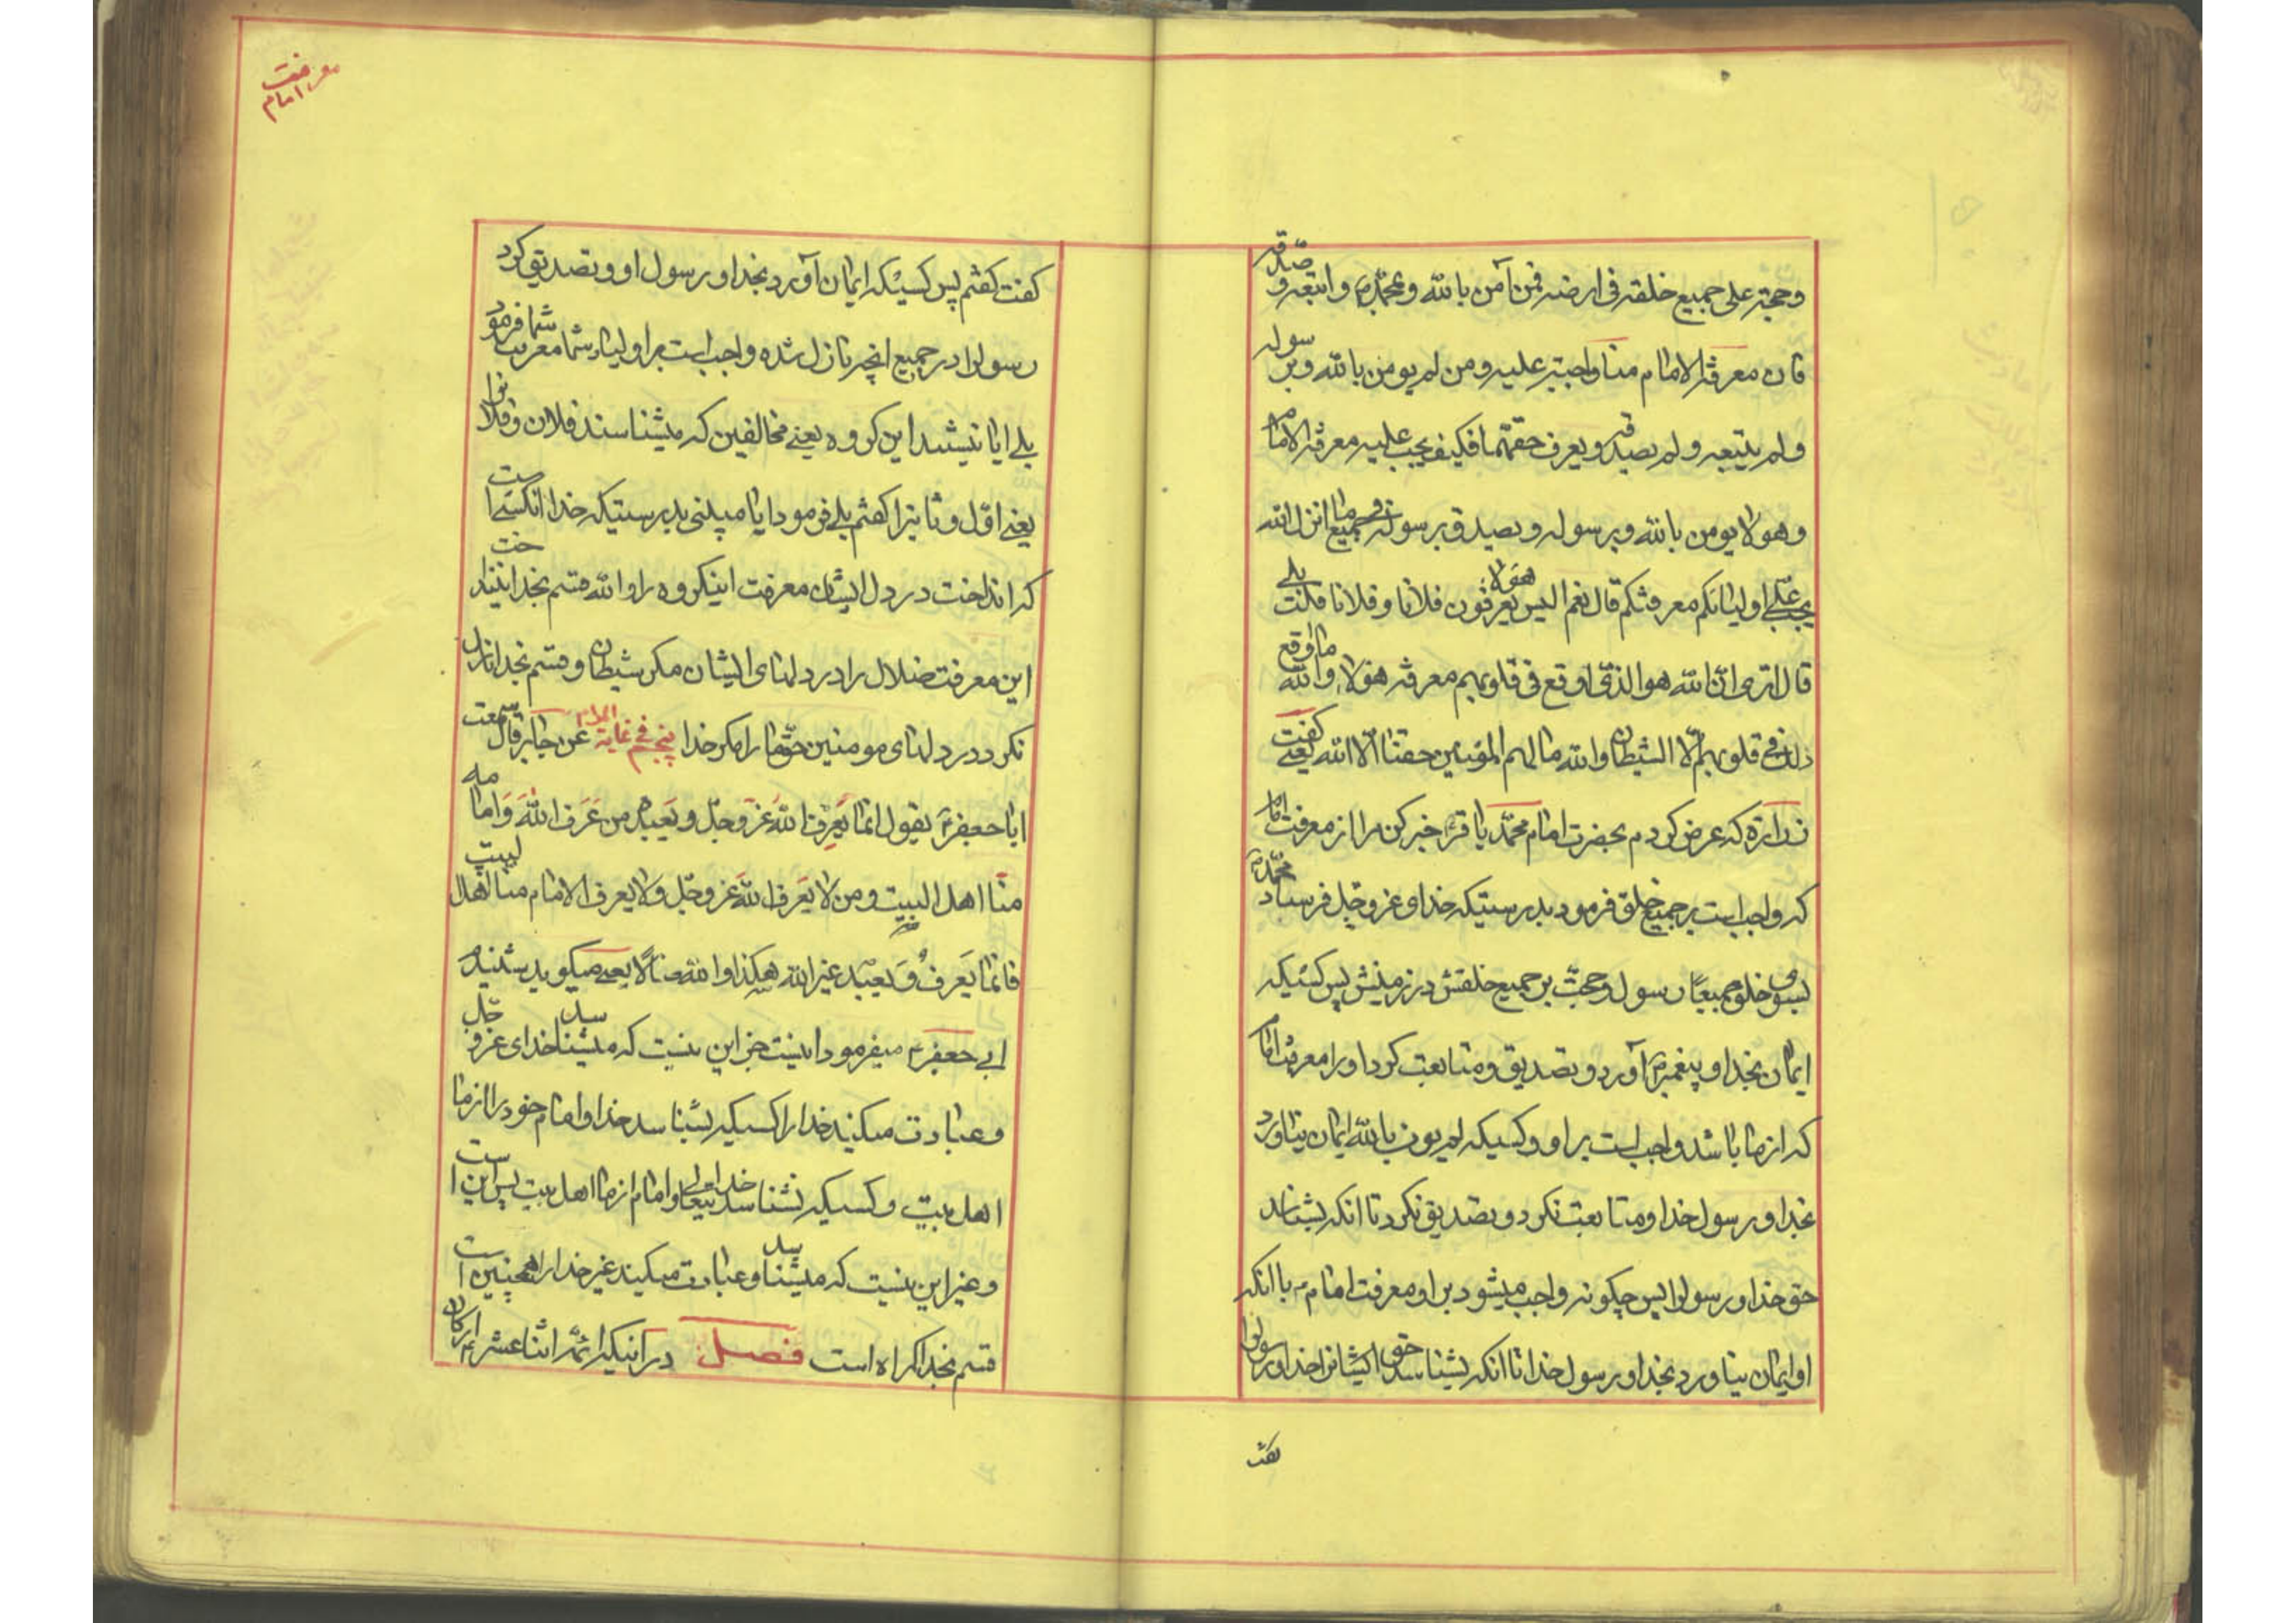 وحجته علی جمیع خلقه فی ارضه فمن آمن بالله وبمحمد ص واتبعه و صدقه
فان معرفة الامام منا واجبة علیه ومن لم یومن بالله وبر سوله
ولم یتبعه ولم یصدقه ویعرف حقهما فکیف یجب علیه معرفة الامام
وهو لا یومن بالله وبرسوله ویصدق برسوله فی جمیع ما انزل الله
یجب علی اولیائکم معرفتکم قال نعم الیس هولاء یعرفون فلانا وفلانا قلت بلی
قال اتری ان الله هو الذی اوقع فی قلوبهم معرفة هولاء والله ما اوقع
ذلک فی قلوبهم الا الشیطان والله ما لهم المؤمنین حقنا الا الله یعنی گفت
زراره که عرض کردم بحضرت امام محمد باقر خبر کن مرا از معرفت امام
که واجب است بر جمیع خلق فرمود بدرستیکه خدای عزوجل فرستاد محمد ص
بسوی خلق جمیعا رسول وحجت بر جمیع خلقش در زمینش پس کسیکه
ایمان بخدا و پیغمبر آورد و تصدیق و متابعت کرد او را معرفت امام
که از ما باشد واجب است بر او و کسیکه لم یومن بالله ایمان نیاورد
بخدا و رسول خدا و متابعت نکرد و تصدیق نکرد تا آنکه بشناسد
حق خدا و رسولرا پس چگونه واجب میشود بر او معرفت امام با آنکه
او ایمان نیاورد بخدا و رسول خدا تا آنکه بشناسد حق ایشانرا خدا و رسولرا
گفت
معرفت امام
گفت گفتم پس کسیکه ایمان آورد بخدا و رسول او و تصدیق کرد
رسولرا در جمیع انچه نازل شده واجب است بر اولیاء شما معرفت شما فرمود
بلی ایا نیستند این گروه یعنی مخالفین که میشناسند فلان و فلانرا
یعنی اول و ثانیرا گفتم بلی فرمود ایا میبینی بدرستیکه خدا انکسی است
که انداخت در دل ایشان معرفت اینگروه را والله قسم بخدا نینداخت
این معرفت ضلال را در دلهای ایشان مگر شیطان و قسم بخدا نازل
نکرد در دلهای مومنین حق ما را مگر خدا پنجم فی غایة المرام عن جابر قال سمعت
ابا جعفر یقول انما یعرف الله عزوجل ویعبده من عرف الله وامامه
منا اهل البیت ومن لا یعرف الله عزوجل ولا یعرف الامام منا اهل البیت
فانما یعرف ویعبد غیر الله هکذا والله ضلالا یعنی میگوید شنیدم
ابی جعفر میفرمود اینست جز این نیست که میشناسد خدای عزوجل
و عبادت میکند خدا را کسیکه بشناسد خدا و امام خود را از ما
اهل بیت و کسیکه نشناسد خدایتعالی و امام از ما اهل بیت پس این است
و غیر این نیست که میشناسد و عبادت میکند غیر خدا را همچنین است
قسم بخدا گمراه است فصل در اینکه ائمه اثنا عشر ارکان